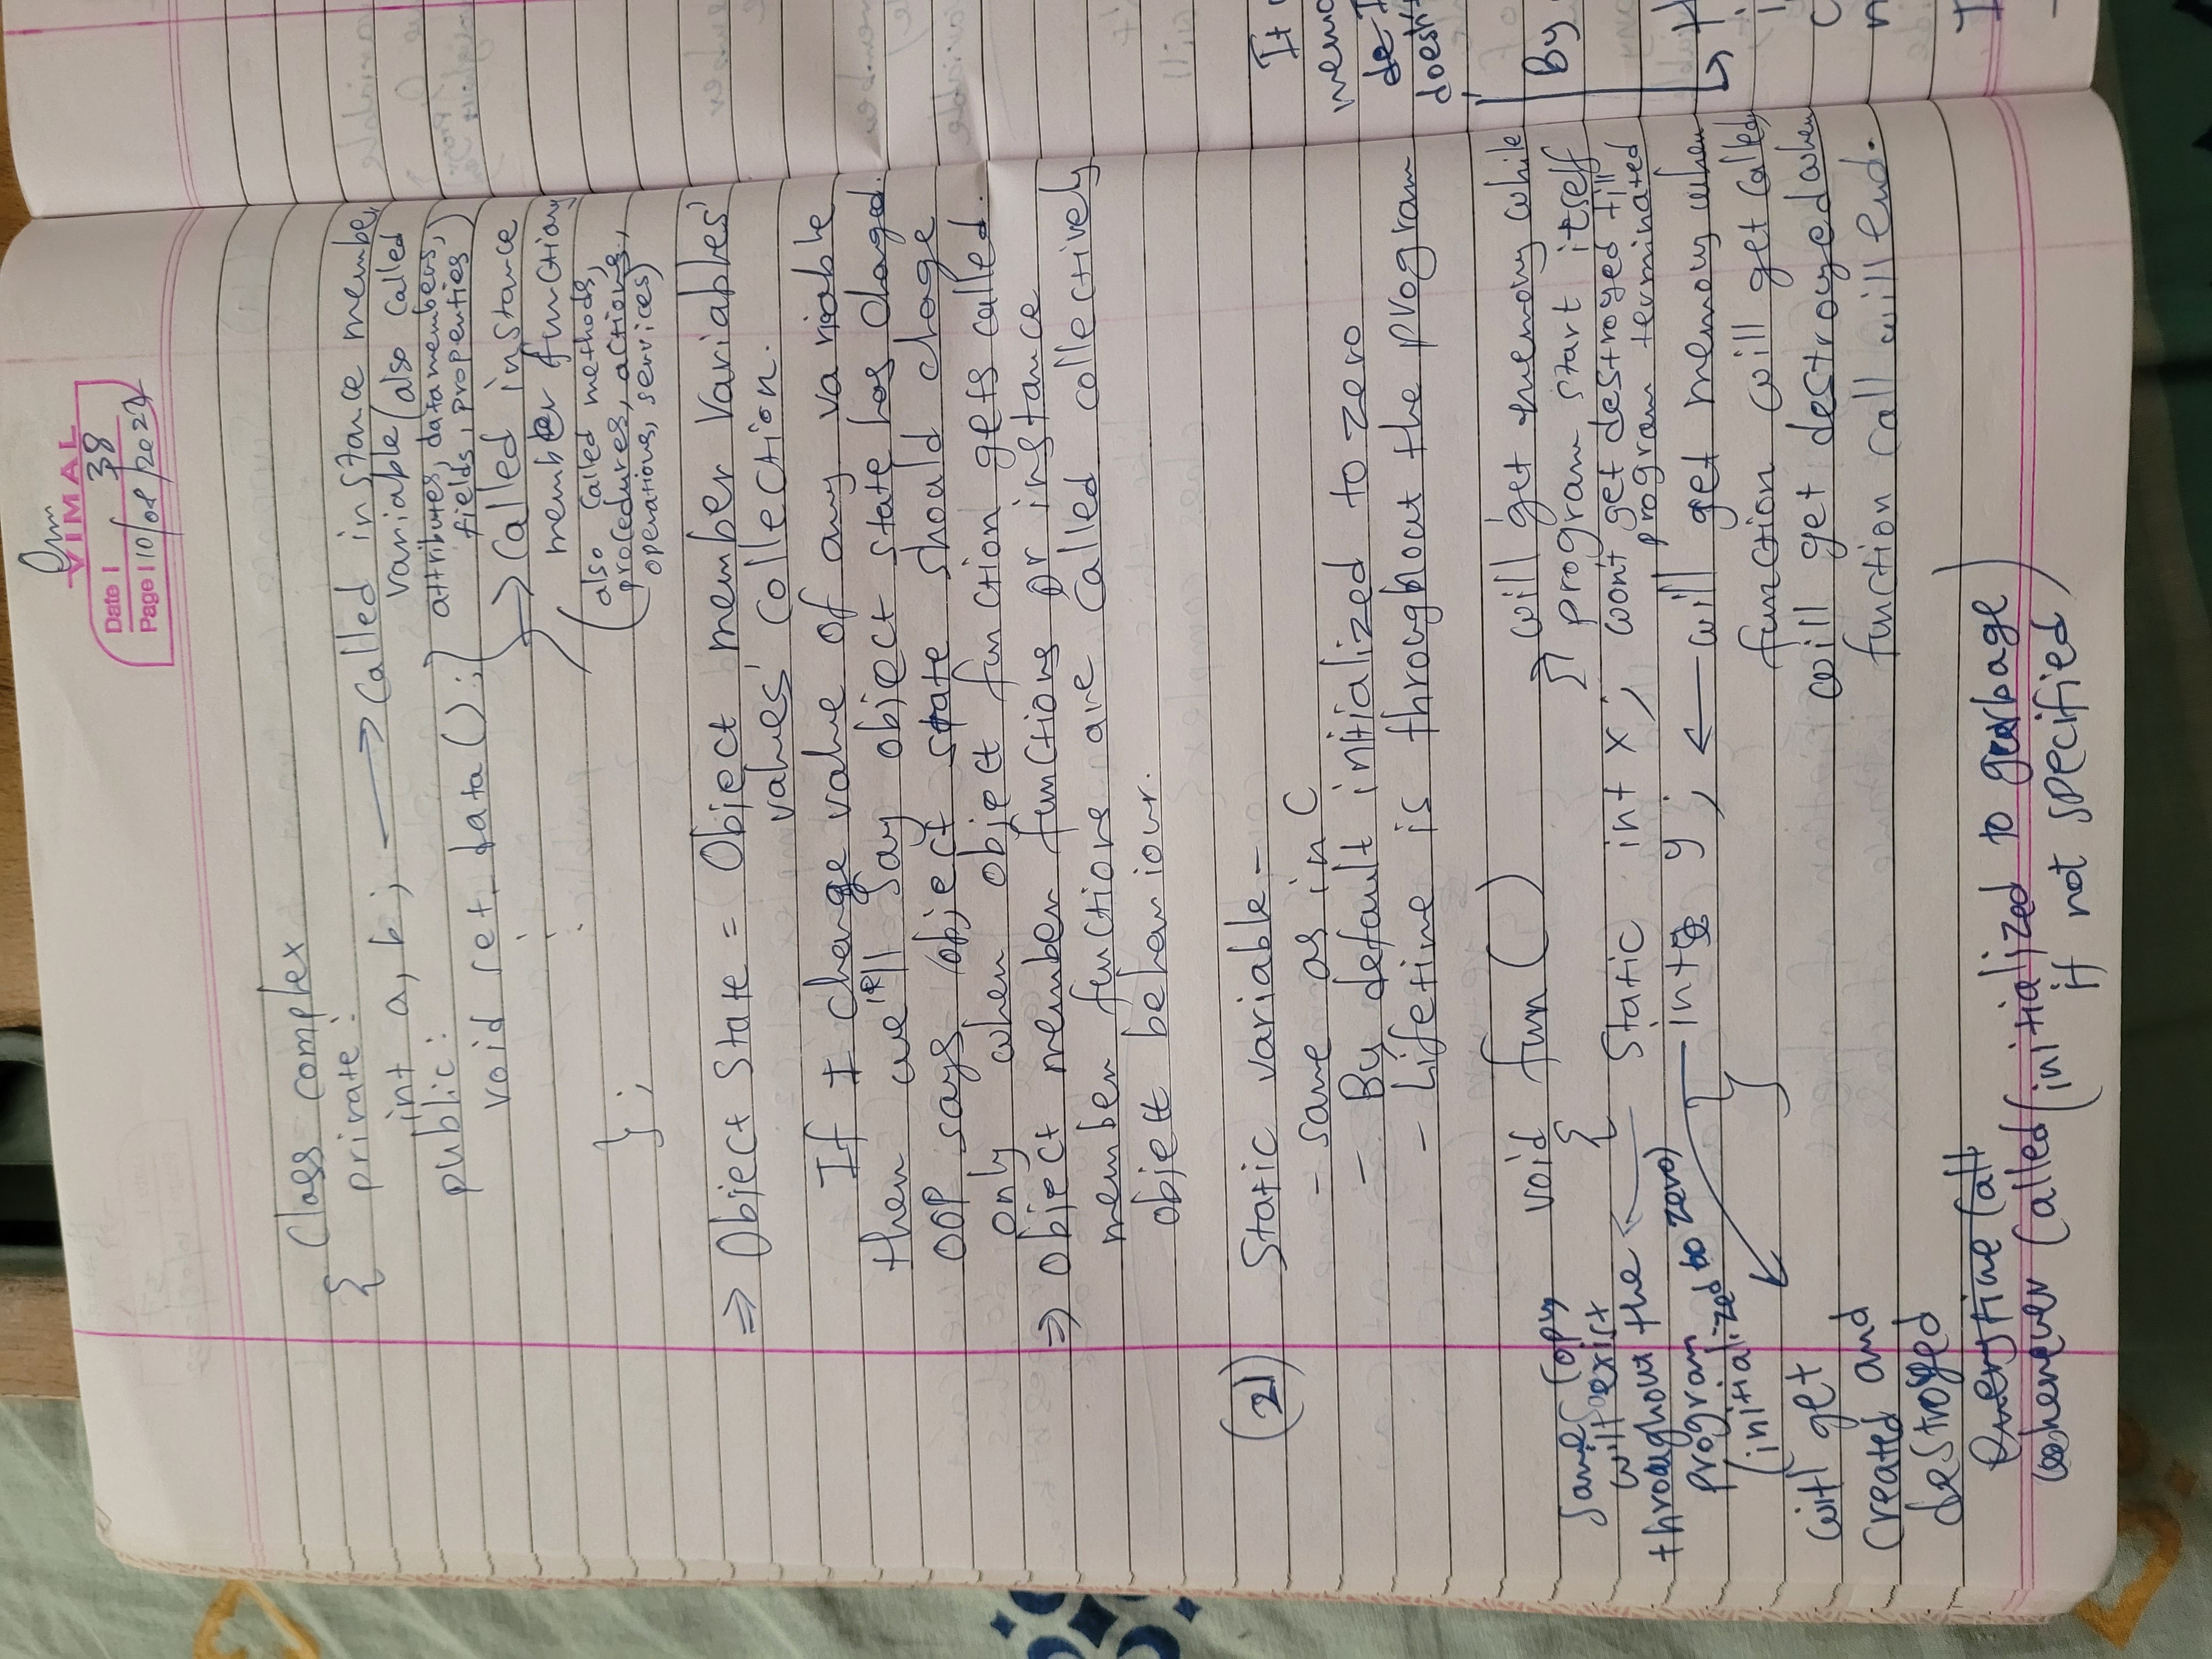 Om
VIMAL
Date 38
Page 10/08/202
Class complex
{ private:
int a, b; → Called instance member
variable (also called
attributes, datamembers,
fields, properties)
public:
void set_data();
→ Called instance
member functions
(also called methods,
procedures, actions,
operations, services)
};
⇒ Object State = Object member Variables'
values' collection.
If I change value of any variable
then we'll say object state has chaged.
OOP says object state should chage
only when object function gets called.
⇒ Object member functions or instance
member functions are called collectively
object behaviour.
(2) Static variable -
- same as in C
- By default initialized to zero
- Lifetime is throughout the program
void fun()
{
Static int x;
will get memory while
program start itself
won't get destroyed till
program terminated
Same copy
will exist
throughout the
program
(initialized to zero)
int y; ← will get memory when
function will get called,
will get destroyed when
function call will end.
}
will get
created and
destroyed
everytime call
whenever called (initialized to garbage
if not specified)
It
memo
de I
doesn't
By